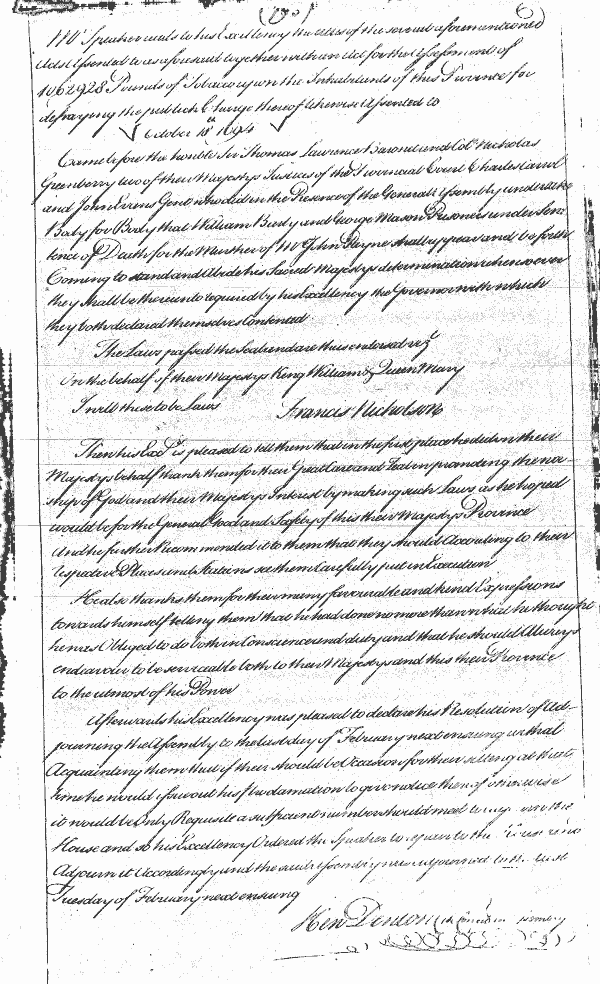 Mr Speaker reads to his Excellency the titles of the several aforementioned
Acts Assented to as aforesaid together with an Act for the Assessment of
1062928 Pounds of Tobacco upon the Inhabitants of this Province for
defraying the publick Charge thereof likewise Assented to
October 18th 1694
Came before the honble Sir Thomas Lawrence Baronet and Col Nicholas
Greenberry two of their Majestys Justices of the Provincial Court Charles Carrol
and John Evens Gent who did in the Presence of the Generall Assembly undertake
Body for Body that William Burly and George Mason Prisoners under Sen
tence of Death for the Murther of Mr John Payne shall appear and be forth
Coming to stand and Abide his Sacred Majestys determination whensoever
they shall be thereunto required by his Excellency the Governor with which
they both declared themselves Contented
The Laws passed the Seal and are thus endorsed vizt
On the behalf of their Majestys King William & Queen Mary
I will these to be Laws Francis Nicholson
Then his Excy is pleased to tell them that in the first place he did in their
Majestys behalf thank them for their Great Care and Zeal in promoting the wor
ship of God and their Majestys Interest by making such Laws as he hoped
would be for the General Good and Safety of this their Majestys Province
And he further Recommended it to them that they should According to their
respective Places and Stations see them Carefully put in Execution
He also thanks them for their many favourable and kind Expressions
towards himself telling them that he had done no more than what he thought
he was Obliged to do both in Conscience and duty and that he should Always
endeavour to be serviceable both to their Majestys and this their Province
to the utmost of his Power
Afterwards his Excellency was pleased to declare his Resolution of Ad-
journing the Assembly to the last day of February next ensuing withal
Acquainting them that if their should be Occasion for their sitting at that
time he would issue out his Proclamation to give notice thereof otherwise
it would be Only Requisite a sufficient number should meet to
House and so his Excellency Ordered the Speaker to repair to the House and
Adjourn it Accordingly and the said Assembly was Adjourned to the last
Tuesday of February next ensuing
Hen Denton